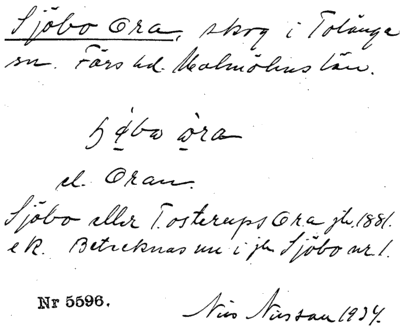 Sjöbo Ora, skog i Tolånga
sn. Färs hd. Malmöhus län.
ora
el. Oran.
Sjöbo eller Tosterups Ora jb. 1881.
ek. Betecknas nu i jb Sjöbo nr 1.
Nr 5596.
Nils Nilsson 1934.